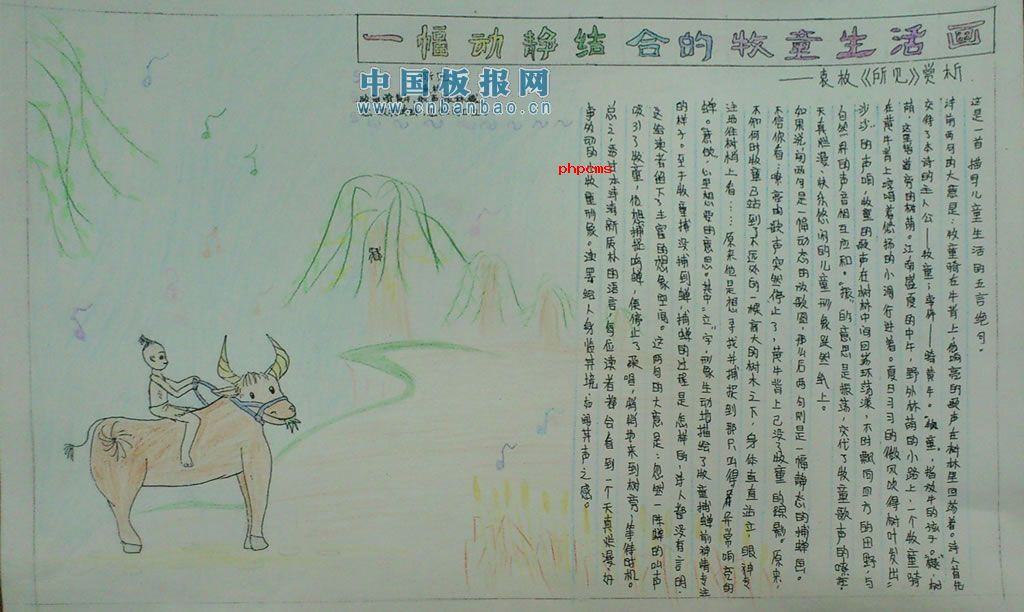 一幅动静结合的牧童生活画
——袁枚《所见》赏析
中国板报网
www.cnbanbao.cn
phpcms
这是一首描写儿童生活的五言绝句。
诗前两句的大意是：牧童骑在牛背上，他响亮的歌声在树林里回荡着。诗人首先
交待了本诗的主人公——牧童；事件——骑黄牛。"牧童，指放牛的孩子。"樾"树
荫，这里指道旁的树荫。江南盛夏的中午，野外林荫的小路上，一个牧童骑
在黄牛背上，哼唱着悠扬的小调行进着。夏日习习的微风吹得树叶发出"
沙沙"的声响，牧童的歌声在树林中间回荡环荡漾，不时飘向四方的田野，与
自然界的声音相互应和。"振"的意思是振荡，交代了牧童歌声的嘹亮
天真烂漫、快乐悠闲的儿童形象跃然纸上。
如果说，前两句是一幅动态的放歌图，那么后两句则是一幅静态的捕蝉图。
不信你看：嘹亮的歌声突然停止了，黄牛背上已没了牧童的踪影。原来，
不知何时牧童已站到了不远处的一棵高大的树木之下，身体直直站立，眼神专
注地往树梢上看……原来他是想寻找并捕捉到那只叫得异常响亮的
蝉。意欲，心里想要的意思。其中"立"字，形象生动地描绘了牧童捕蝉前神情专注
的样子。至于牧童捕没捕到蝉，捕蝉的过程是怎样的，诗人都没有言明，
这给读者留下了丰富的想象空间。这两句的大意是：忽然一阵蝉的叫声
吸引了牧童，他想捕捉鸣蝉，便停止了歌唱，悄悄地来到树旁，等待时机。
总之，透过本诗清新质朴的语言，每位读者都会看到一个天真烂漫、好
事好动的小牧童形象。读罢给人身临其境、如闻其声之感。